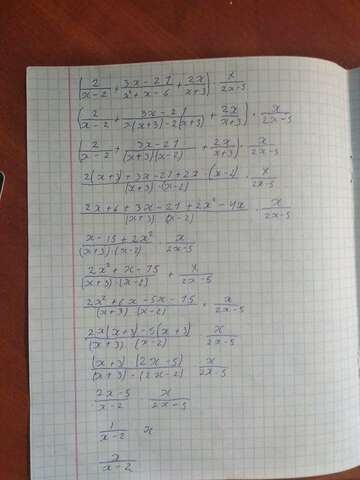 (2/(x-2) + (3x-21)/(x²+x-6) + 2x/(x+3)) · x/(2x-5)
(2/(x-2) + (3x-21)/(x(x+3)-2(x+3)) + 2x/(x+3)) · x/(2x-5)
(2/(x-2) + (3x-21)/((x+3)(x-2)) + 2x/(x+3)) · x/(2x-5)
(2(x+3)+3x-21+2x·(x-2))/((x+3)·(x-2)) · x/(2x-5)
(2x+6+3x-21+2x²-4x)/((x+3)·(x-2)) · x/(2x-5)
(x-15+2x²)/((x+3)·(x-2)) · x/(2x-5)
(2x²+x-15)/((x+3)·(x-2)) · x/(2x-5)
(2x²+6x-5x-15)/((x+3)·(x-2)) · x/(2x-5)
(2x(x+3)-5(x+3))/((x+3)·(x-2)) · x/(2x-5)
((x+3)·(2x-5))/((x+3)·(2x-2)) · x/(2x-5)
(2x-5)/(x-2) · x/(2x-5)
1/(x-2) · x
x/(x-2)